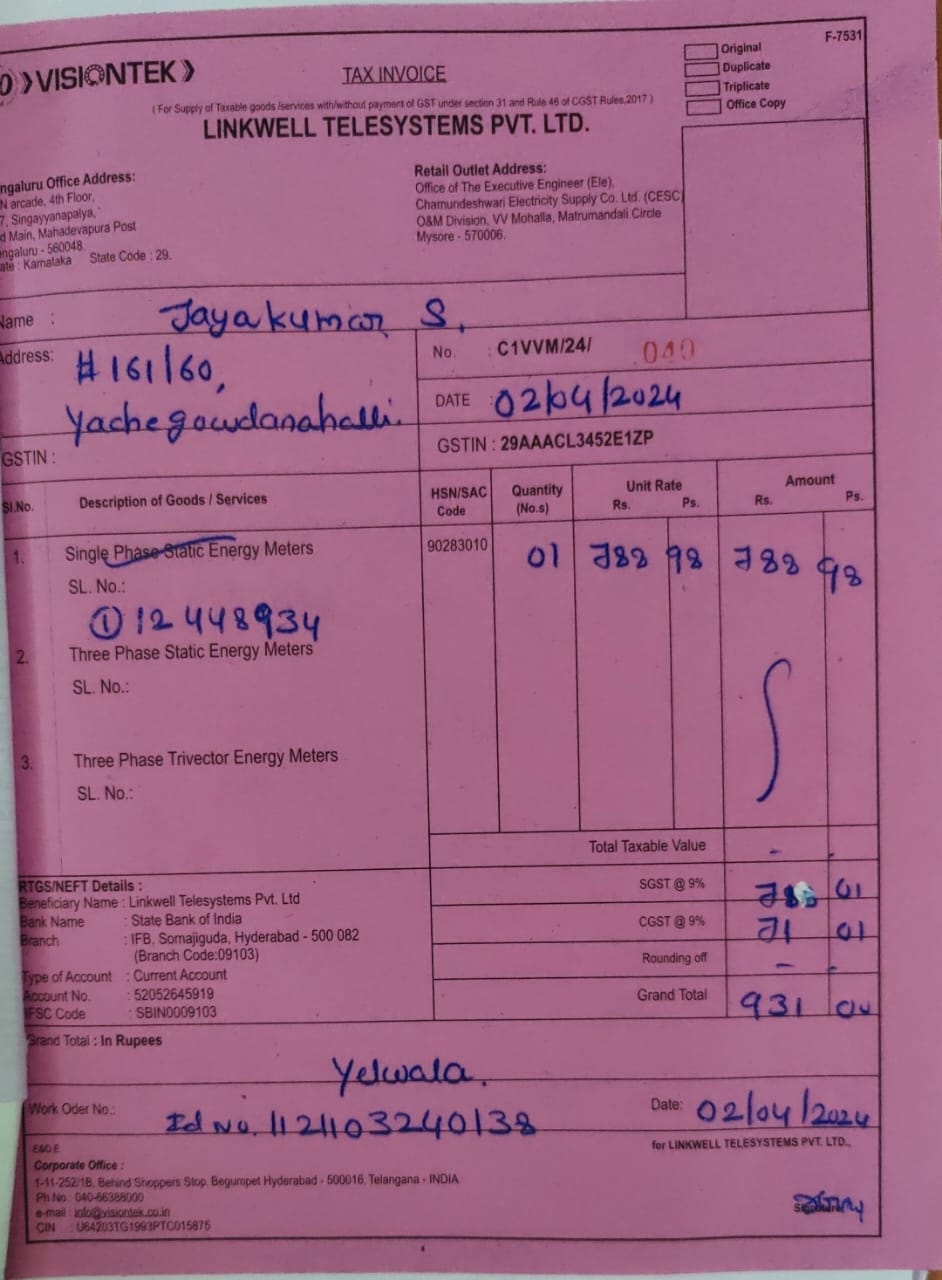 F-7531
VISIONTEK
TAX INVOICE
Original
Duplicate
Triplicate
Office Copy
( For Supply of Taxable goods /services with/without payment of GST under section 31 and Rule 46 of CGST Rules.2017 )
LINKWELL TELESYSTEMS PVT. LTD.
ngaluru Office Address:
N arcade, 4th Floor,
7, Singayyanapalya,
d Main, Mahadevapura Post
ngaluru - 560048.
ate : Karnataka State Code : 29.
Retail Outlet Address:
Office of The Executive Engineer (Ele),
Chamundeshwari Electricity Supply Co. Ltd. (CESC)
O&M Division, VV Mohalla, Matrumandali Circle
Mysore - 570006.
Name : Jayakumar S.
Address: # 161/60,
Yachegowdanahalli.
GSTIN :
No. : C1VVM/24/ 040
DATE : 02/04/2024
GSTIN : 29AAACL3452E1ZP
Sl.No. Description of Goods / Services HSN/SAC Code Quantity (No.s) Unit Rate Rs. Ps. Amount Rs. Ps.
1. Single Phase Static Energy Meters 90283010 01 788 98 788 98
SL. No.:
① 12448934
2. Three Phase Static Energy Meters
SL. No.:
3. Three Phase Trivector Energy Meters
SL. No.:
Total Taxable Value - -
SGST @ 9% 01
CGST @ 9% 71 01
Rounding off - -
Grand Total 931 00
RTGS/NEFT Details :
Beneficiary Name : Linkwell Telesystems Pvt. Ltd
Bank Name : State Bank of India
Branch : IFB, Somajiguda, Hyderabad - 500 082
(Branch Code:09103)
Type of Account : Current Account
Account No. : 52052645919
IFSC Code : SBIN0009103
Grand Total : In Rupees
Yelwala.
Work Oder No.: Id No. 1121103240138
Date: 02/04/2024
for LINKWELL TELESYSTEMS PVT. LTD.,
E&O.E
Corporate Office :
1-11-252/1B, Behind Shoppers Stop, Begumpet Hyderabad - 500016, Telangana - INDIA.
Ph No : 040-66388000
e-mail : info@visiontek.co.in
CIN : U64203TG1993PTC015875